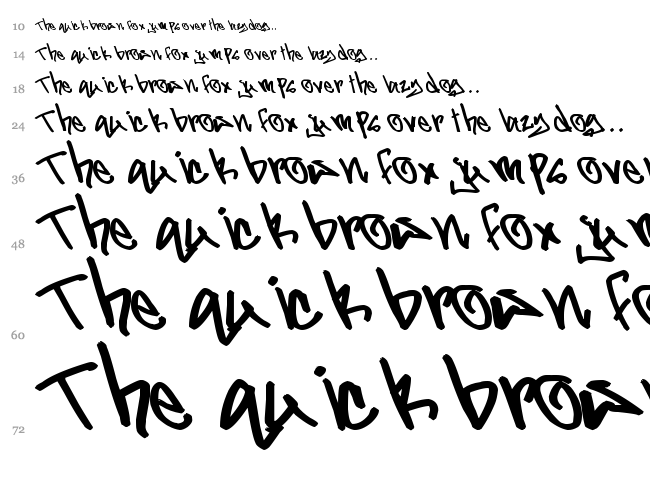 10 The quick brown fox jumps over the lazy dog..
14 The quick brown fox jumps over the lazy dog..
18 The quick brown fox jumps over the lazy dog..
24 The quick brown fox jumps over the lazy dog..
36 The quick brown fox jumps over
48 The quick brown fox jum
60 The quick brown fo
72 The quick brow